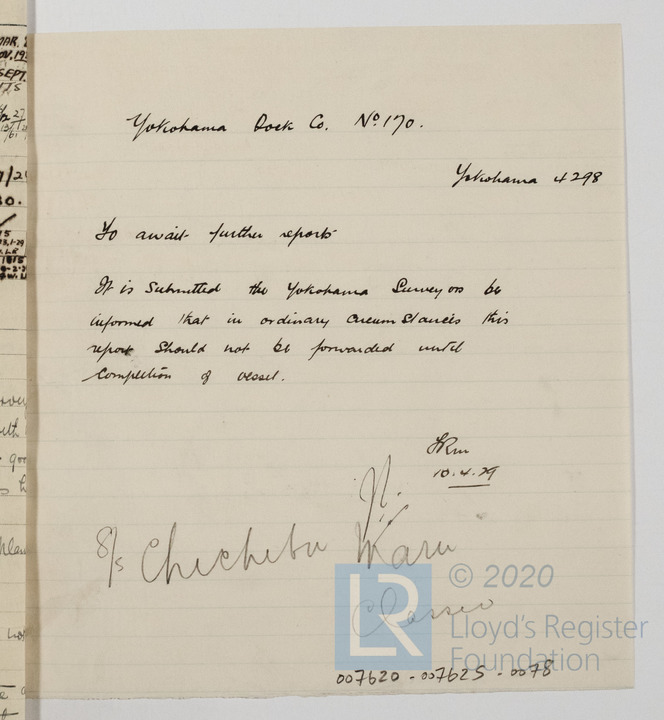 Yokohama Dock Co. Nº 170.
Yokohama 4298
To await further reports
It is submitted the Yokohama Surveyors be
informed that in ordinary circumstances this
report should not be forwarded until
completion of vessel.
10.4.29
S/S Chichibu Maru
LR
© 2020
Lloyd's Register
Foundation
007620 - 007625 - 0078